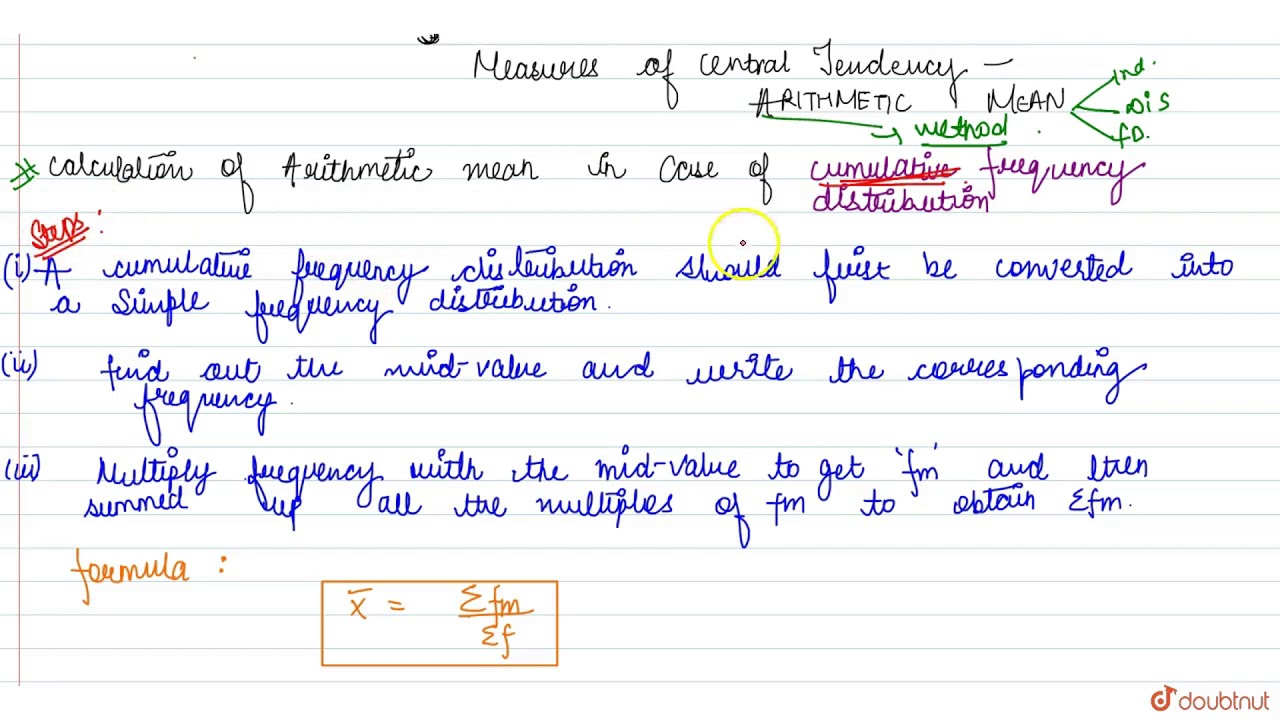 Measures of central Tendency –
ARITHMETIC MEAN
Ind.
Dis
fD.
method
* Calculation of Arithmetic mean in Case of cumulative frequency
distribution
Steps:
(i) A cumulative frequency distribution should first be converted into
a simple frequency distribution.
(ii) find out the mid-value and write the corresponding
frequency.
(iii) Multiply frequency with the mid-value to get 'fm' and then
summed up all the multiples of fm to obtain Σfm.
formula :
X̄ = Σfm / Σf
doubtnut